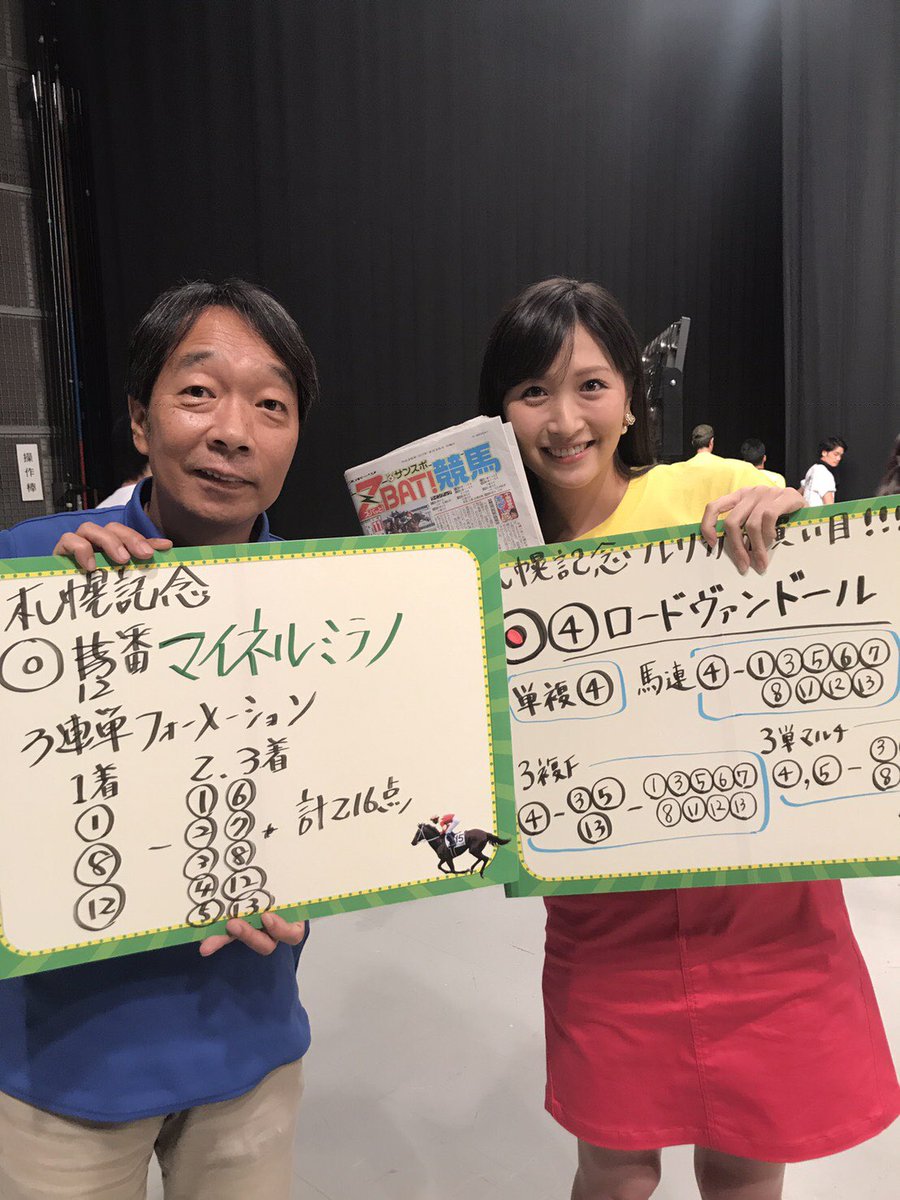 操作棒
サンスポ
BAT!競馬
札幌記念
◎ 12番 マイネルミラノ
3連単フォーメーション
1着 2.3着
① ① ⑥
⑧ - ② ⑦ 計216点
⑫ ③ ⑧
④ ⑫
⑤ ⑬
15
札幌記念 ルリカの買い目!!!
④ロードヴァンドール
単複④ 馬連④-①③⑤⑥⑦
⑧⑪⑫⑬
3複F
④-③⑤-①③⑤⑥⑦
⑬ ⑧⑪⑫⑬
3単マルチ
④,⑤-③
⑧